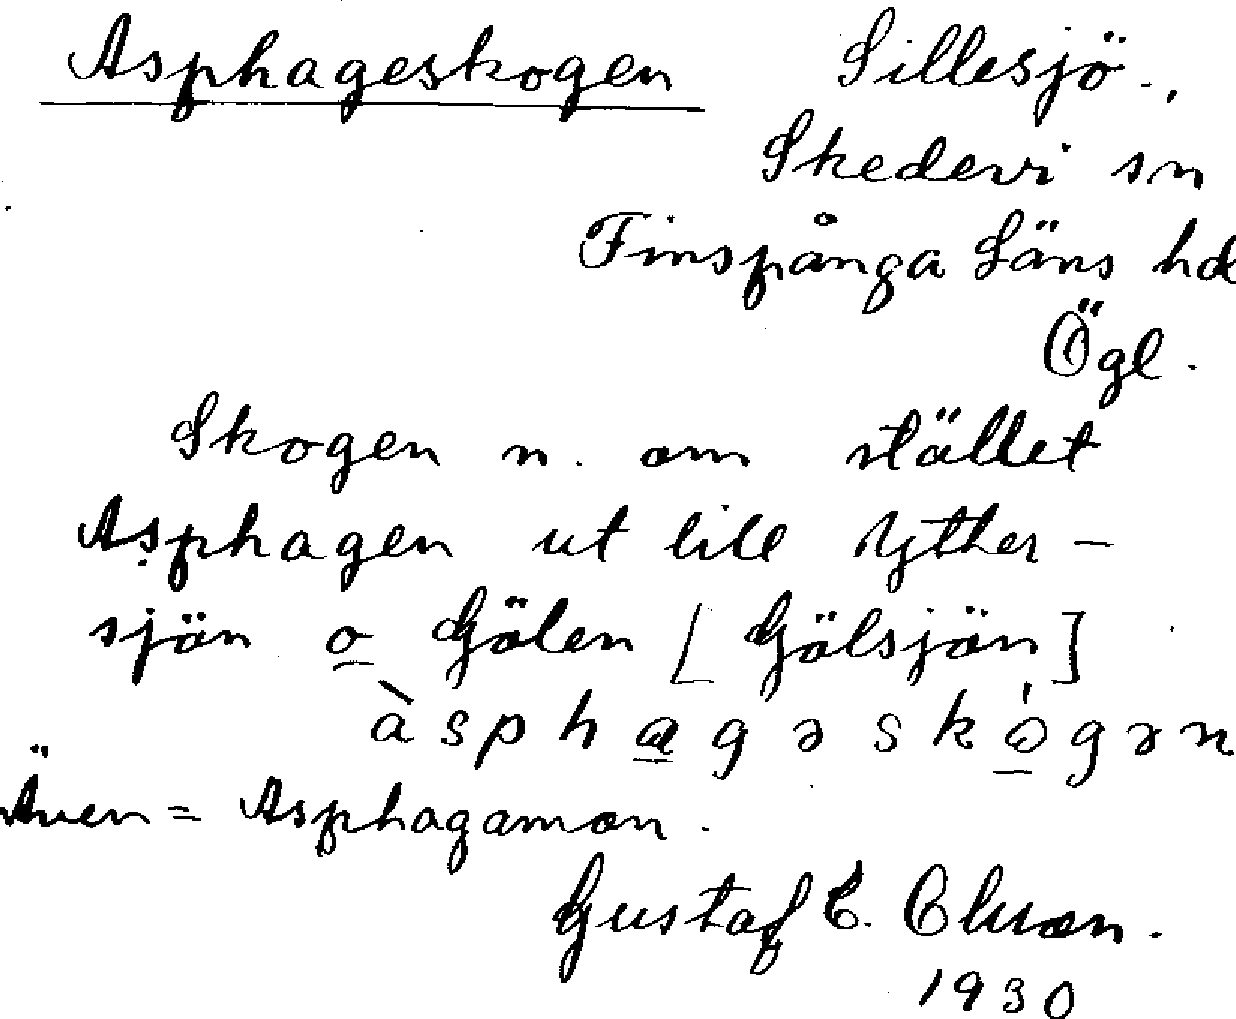 Asphageskogen Sillesjö.,
Skedevi sn
Finspånga Läns hd
Ögl.
Skogen n. om stället
Asphagen ut till Ryther-
sjön o Gölen [Gölsjön]
àsphagəskógən
Även = Asphagamon.
Gustaf E.
1930